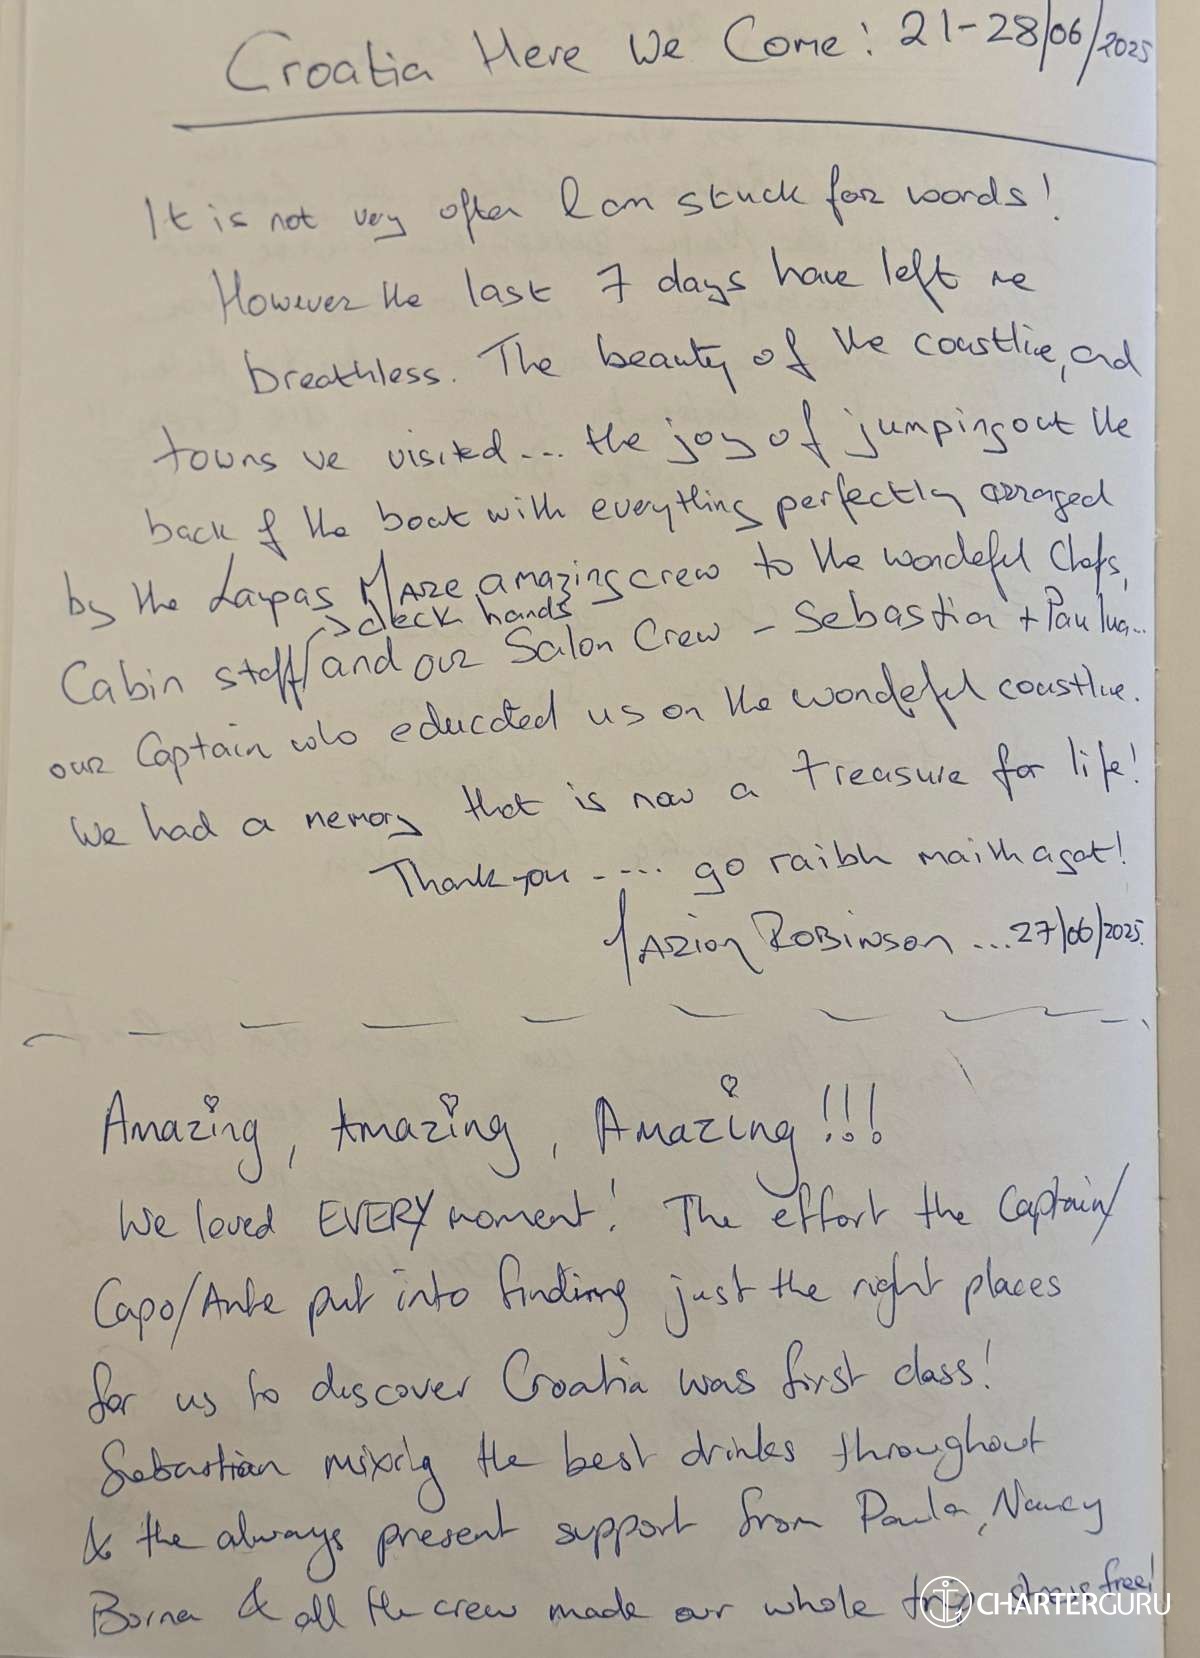 Croatia Here We Come: 21-28/06/2025
It is not very often I am stuck for words!
However the last 7 days have left me
breathless. The beauty of the coastline, and
towns we visited... the joy of jumping out the
back of the boat with everything perfectly arranged
by the Larpas Mare amazing crew to the wonderful Chefs,
Cabin staff/and our Salon Crew - Sebastian + Paulina...
→ deck hands
our Captain who educated us on the wonderful coastline.
We had a memory that is now a treasure for life!
Thank you ..... go raibh maith agat!
Marion Robinson ... 27/06/2025.
Amazing, Amazing, Amazing!!!
We loved EVERY moment! The effort the Captain/
Capo/Ante put into finding just the right places
for us to discover Croatia was first class!
Sebastian mixing the best drinks throughout
& the always present support from Paula, Nancy
Borna & all the crew made our whole trip stress free!
CHARTERGURU